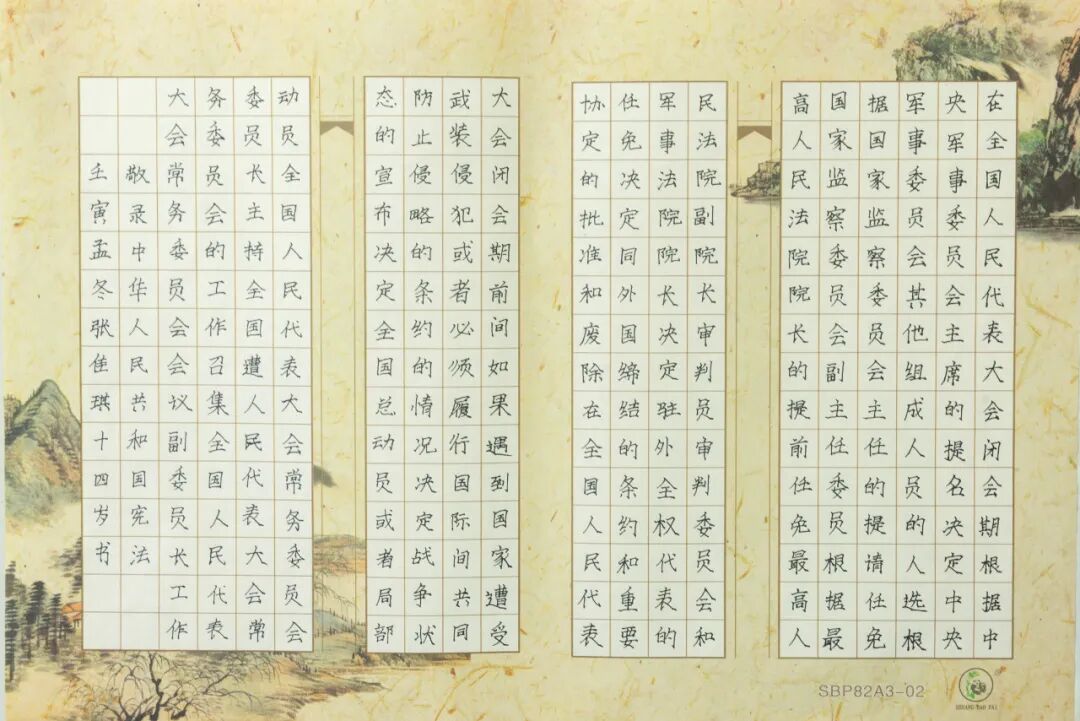 在全国人民代表大会闭会期根据中
央军事委员会主席的提名决定中央
军事委员会其他组成人员的人选根
据国家监察委员会主任的提请任免
国家监察委员会副主任委员根据最
高人民法院院长的提前任免最高人
民法院副院长审判员审判委员会和
军事法院院长决定驻外全权代表的
任免决定同外国缔结的条约和重要
协定的批准和废除在全国人民代表
大会闭会期前间如果遇到国家遭受
武装侵犯或者必须履行国际间共同
防止侵略的条约的情况决定战争状
态的宣布决定全国总动员或者局部
动员全国人民代表大会常务委员会
委员长主持全国遭人民代表大会常
务委员会的工作召集全国人民代表
大会常务委员会会议副委员长工作
敬录中华人民共和国宪法
壬寅孟冬张佳琪十四岁书
SBP82A3-02